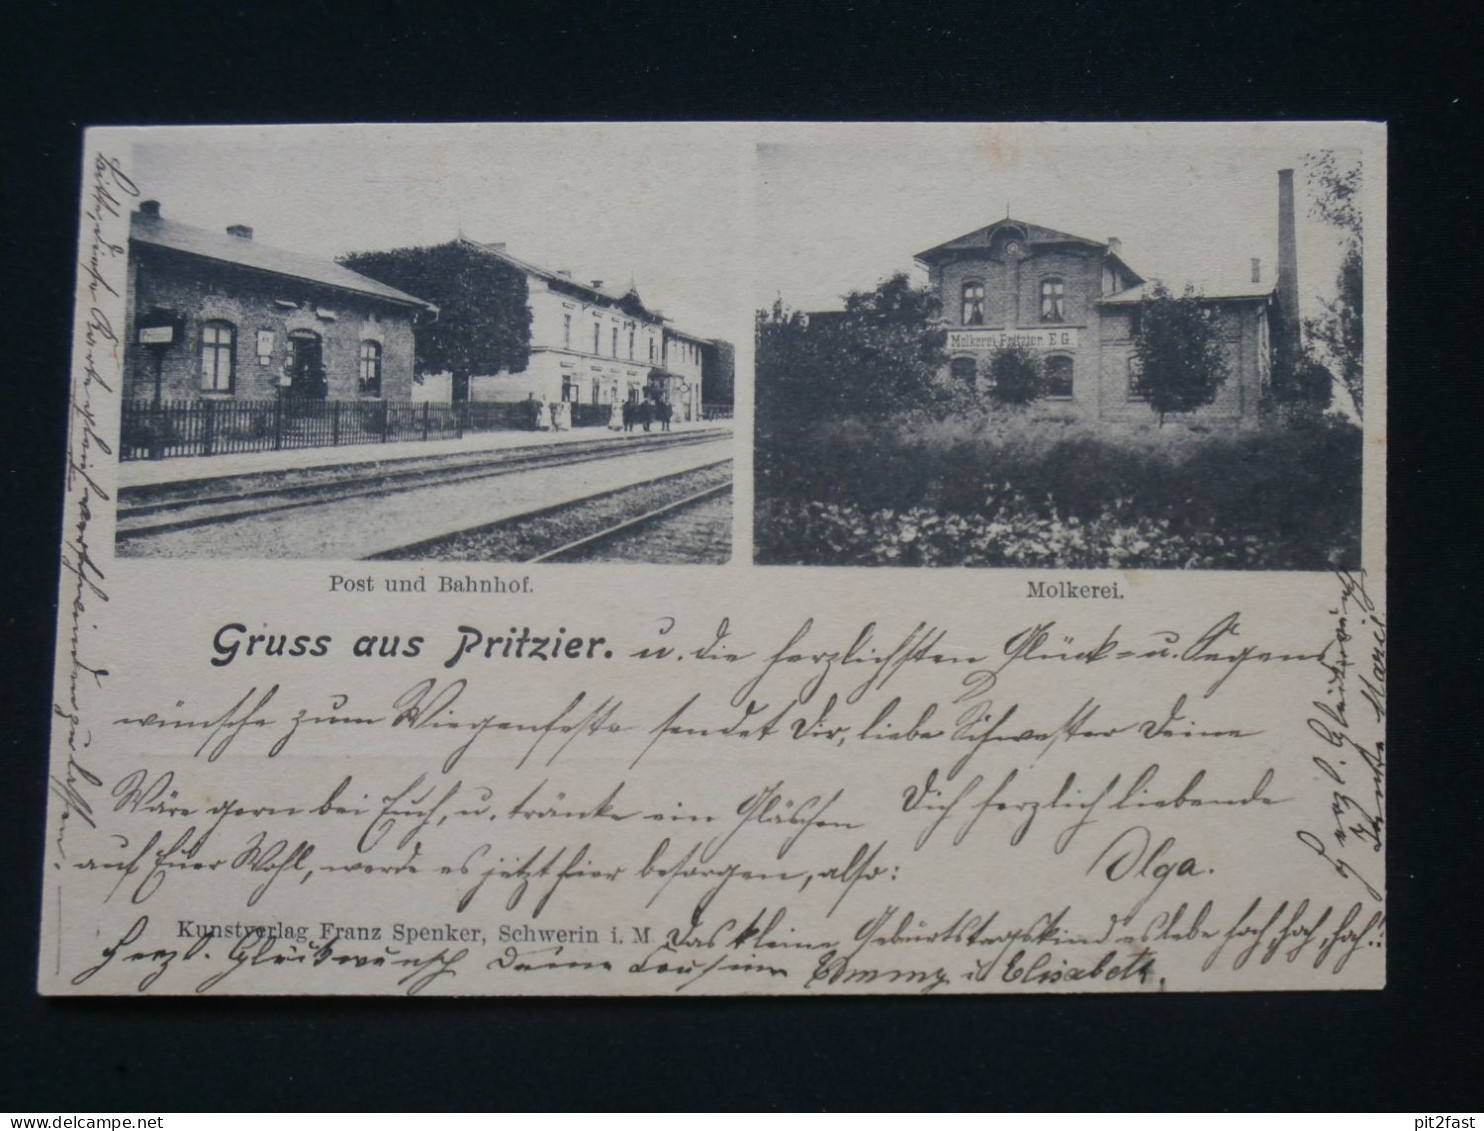 Molkerei Pritzier E.G.
Post und Bahnhof.
Molkerei.
Gruss aus Pritzier. u. die herzlichsten Glück- u. Segens
wünsche zum Wiegenfeste sendet Dir, liebe Schwester Deine
Wäre gern bei Euch, u. tränke ein Gläschen
Dich herzlich liebende
auf Euer Wohl, werde es jetzt hier besorgen, also:
Olga.
Kunstverlag Franz Spenker, Schwerin i. M.
Das kleine Geburtstagskind es lebe hoch, hoch, hoch!
Herzl. Glückwunsch Deine Cousine Emmy u Elisabeth.
Herzl. Glückwunsch
Tante Marie
Bitte, diese Karte
pit2fast